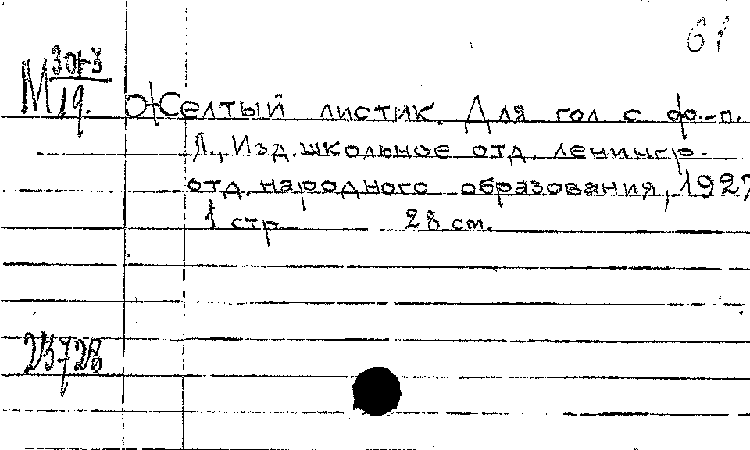 61
М 30-3/19.
Желтый листик. Для гол с фо.-п.
Л., Изд. школьное отд. ленингр.
отд. народного образования, 1927
1 стр 28 см.
23728